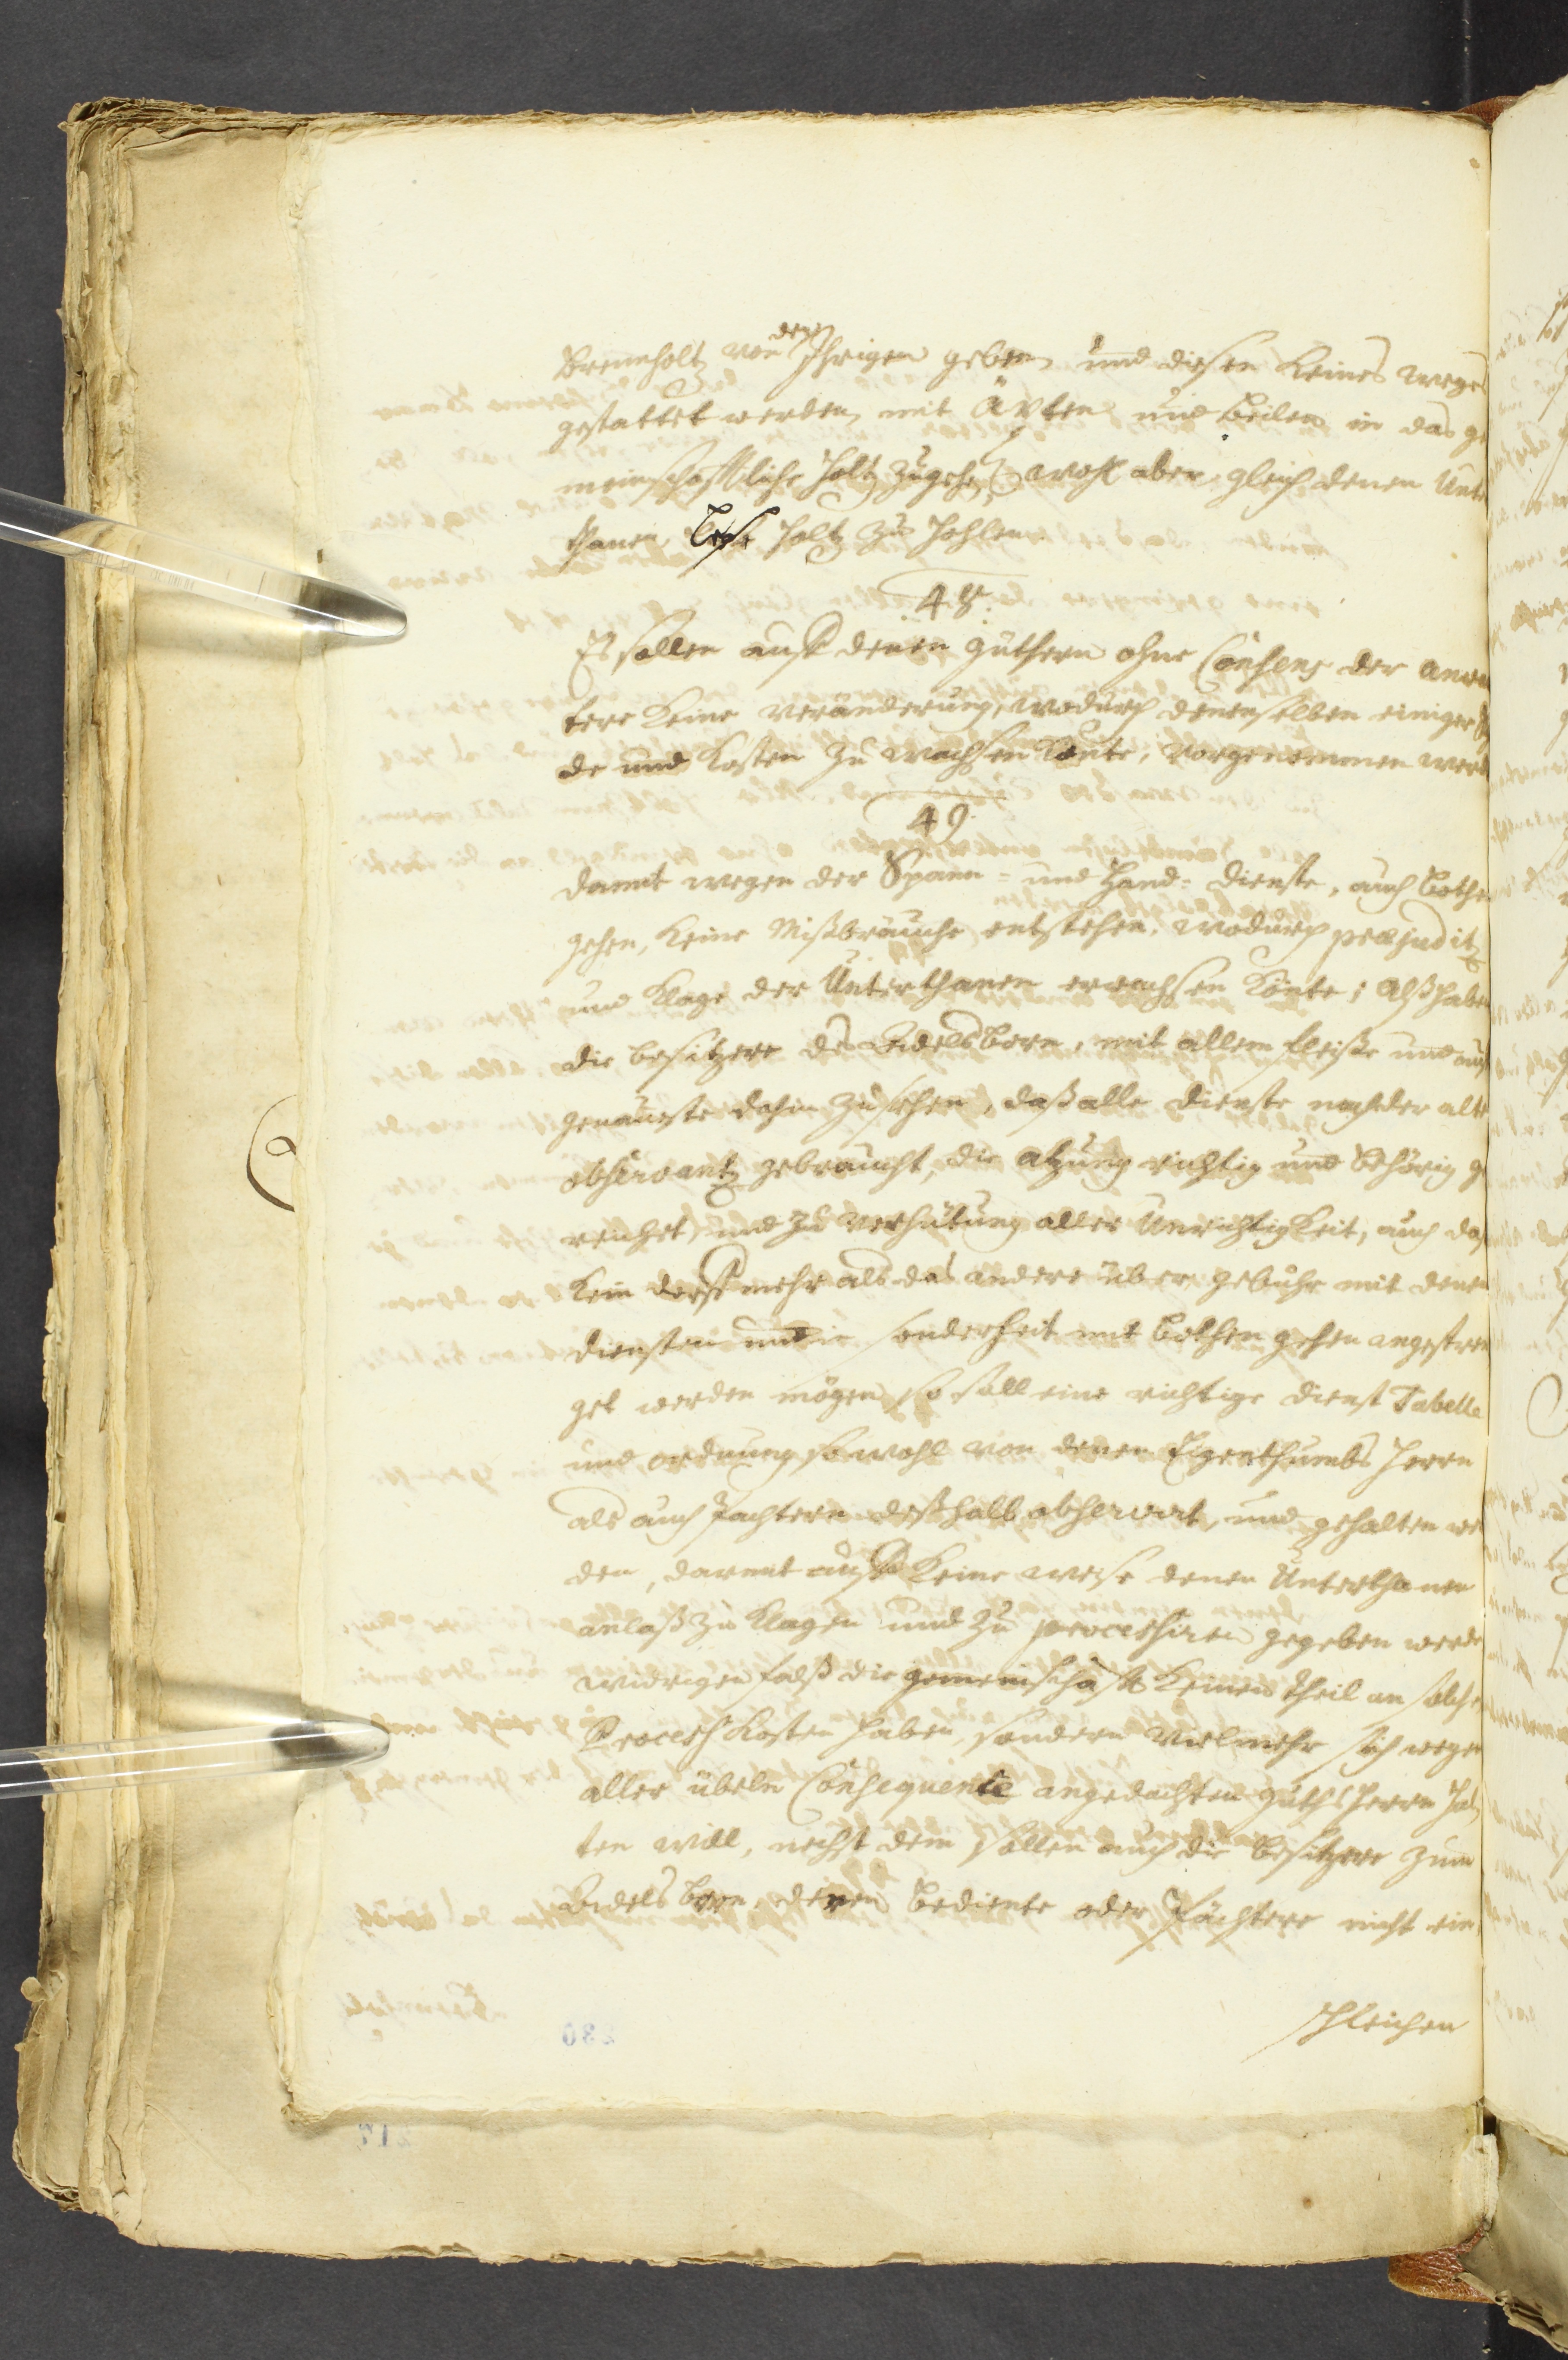 Brennholtz von den Ihrigen geben und diesen Keines weges
gestattet werden, mit Äxten und Beilen in das ge
meinschafftliche Holtz zugehen, wohl aber gleich denen Unter
thanen, Lese Holtz zu hohlen.
48.
Es sollen auff denen Güthern ohne Consens der
tere Keine Veränderung, wodurch denenselben einiger
de und Kosten zu wachsen könte, vorgenommen werd
49.
Damit wegen der Spann- und Hand-Dienste, auch Bothen
gehen, Keine Mißbräuche entstehen, wodurch præjuditz
und Klage der Unterthanen erwachsen könte; Alß haben
die Besitzere des Adelsborn, mit allem fleiße und auffs
genaueste dahin zusehen, daß alle Dienste nach der alten
observantz gebraucht, die atzung richtig und behörig ge
reichet, und zu Verhütung aller Unrichtigkeit, auch daß
Kein Dorff mehr als das andere über gebühr mit denen
Diensten und in sonderheit mit Bothen gehen angestren
get werden mögen, so soll eine richtige Dienst Tabelle
und ordnung sowohl von denen Eigenthumbs Herrn
als auch Pachtern deßhalb observirt, und gehalten wer
den, damit auff Keine weise denen Unterthanen
anlaß zu Klagen und zu processiren gegeben werde
widrigen falß die gemeinschafft Keinen theil an solchen
Process Kosten haben, sondern vielmehr sich wegen
aller übeln Consequentie angedachten Guths Herrn hal
ten will, nechst dem sollen auch die Besitzere zum
Adelsborn, deren Bediente oder Pächtere nicht ein
schleichen